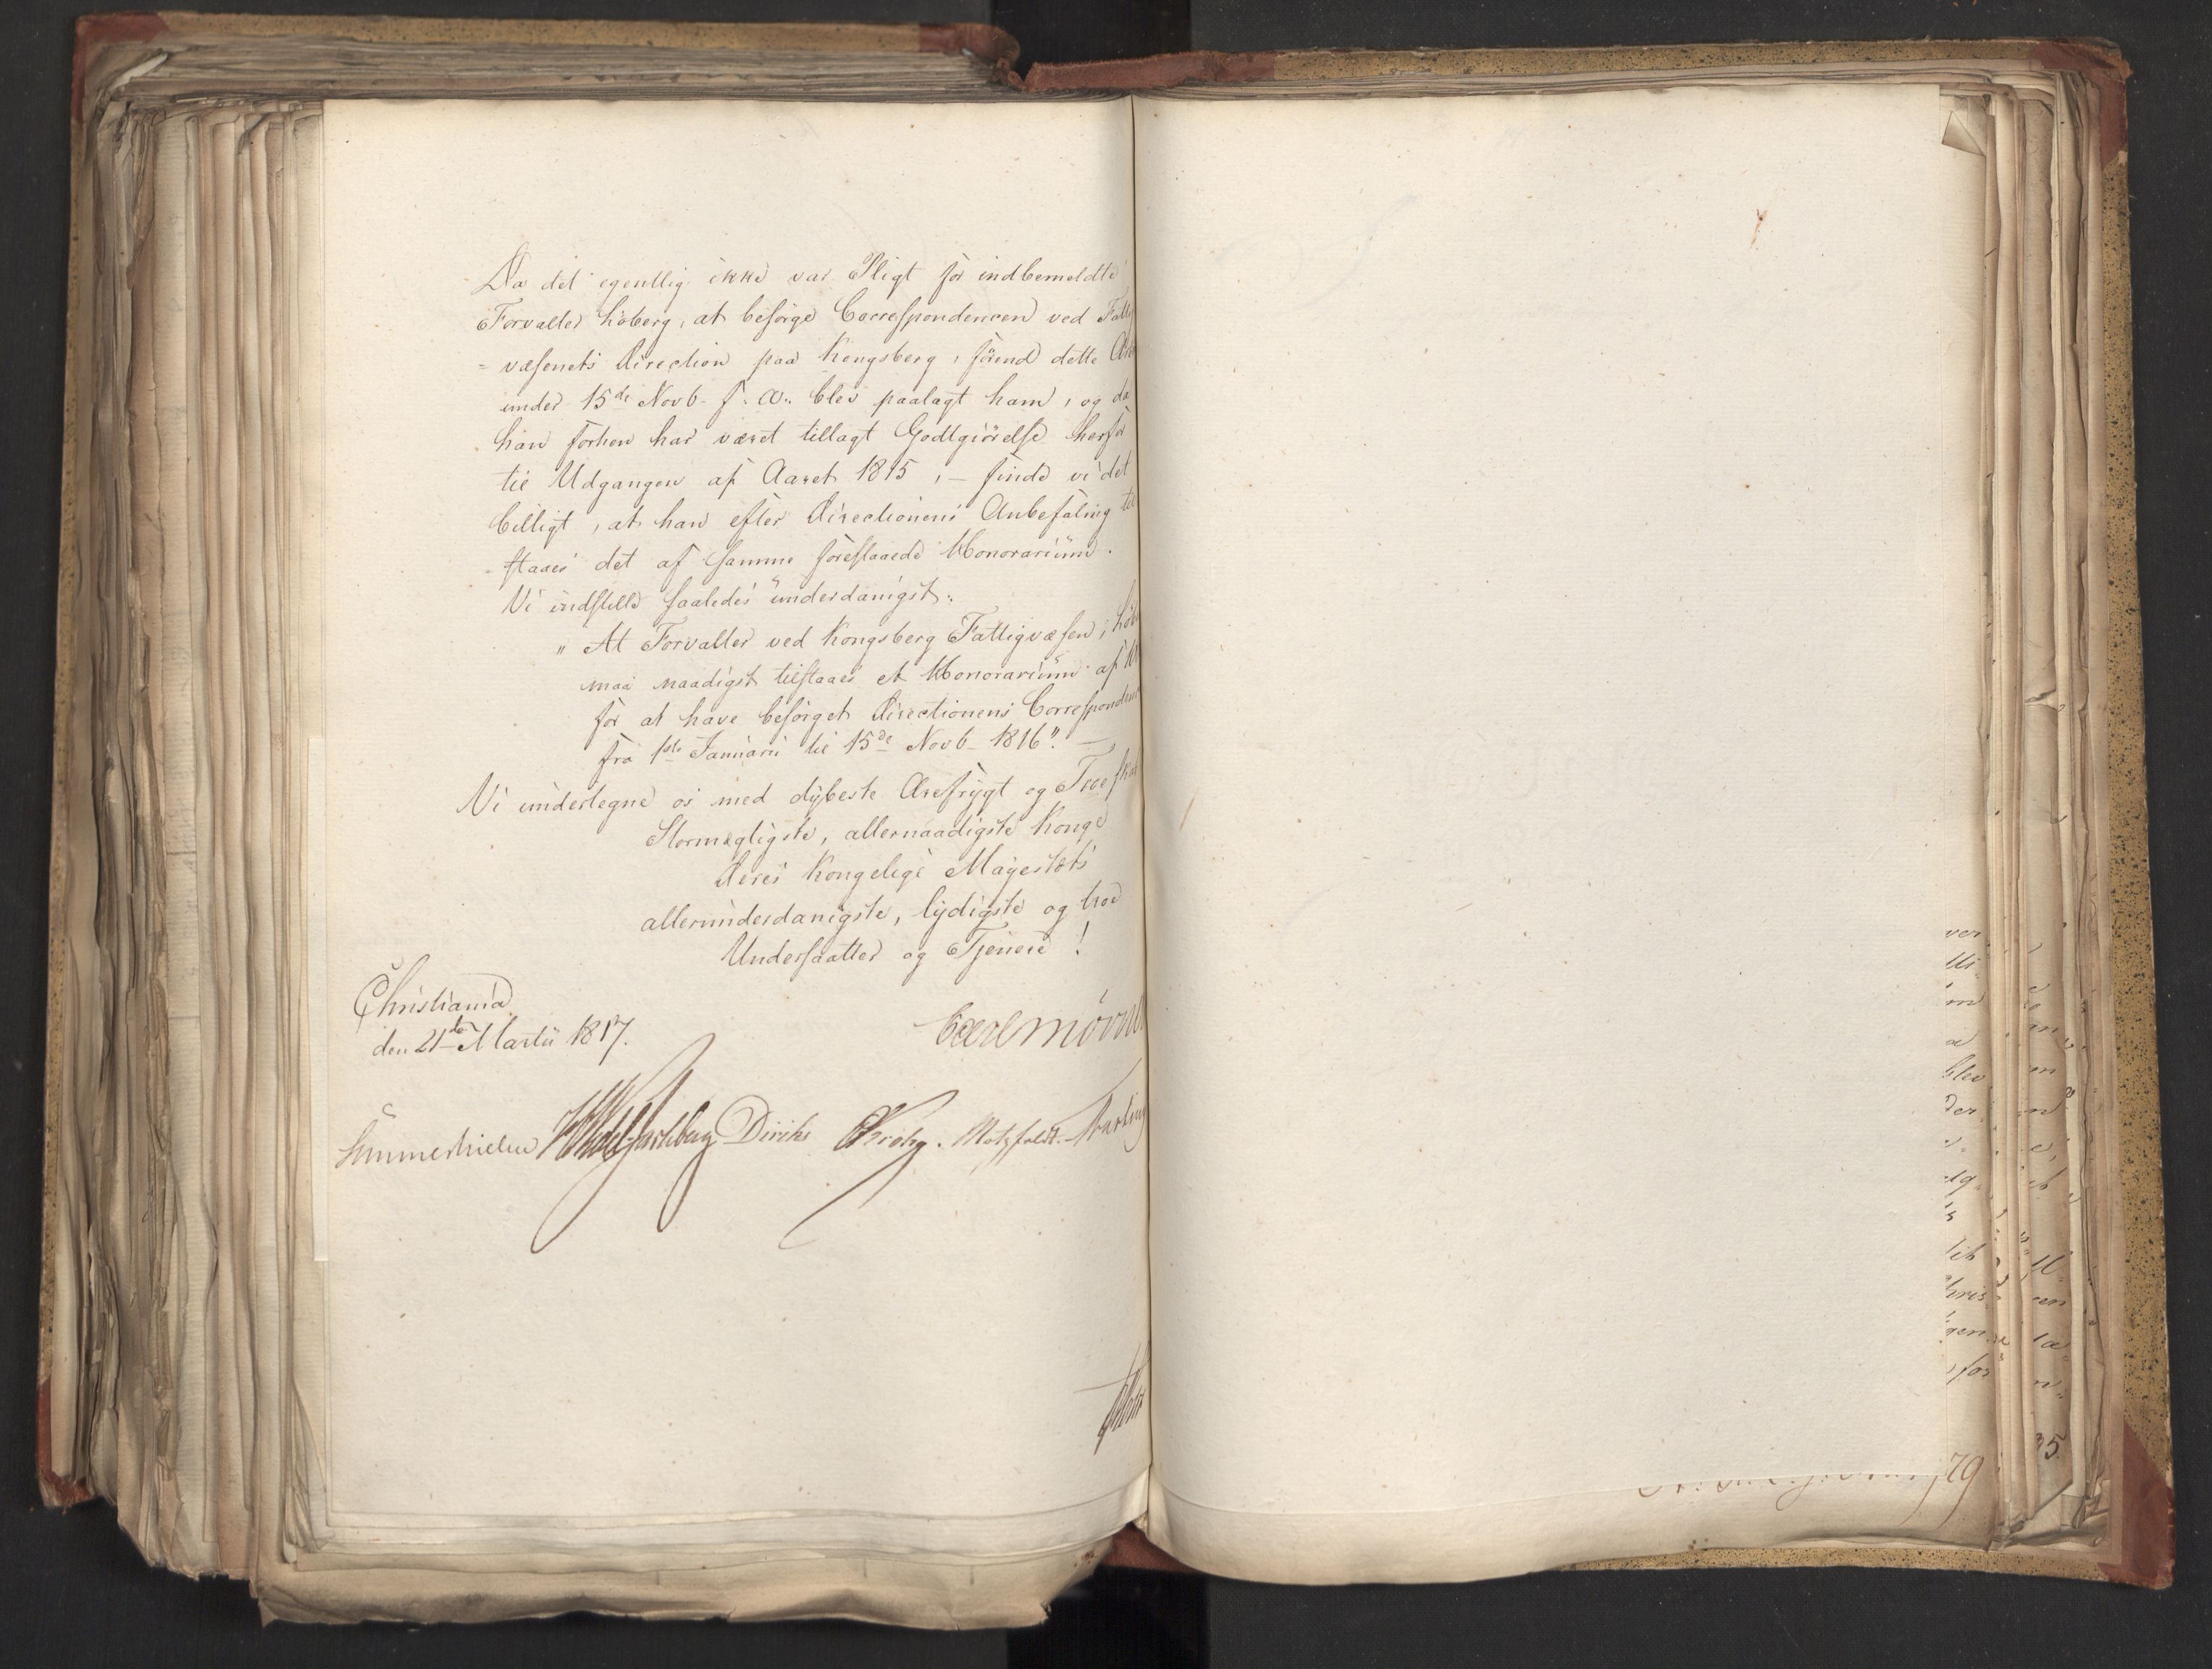 Da det egentlig ikke var Pligt for indbemeldte
Forvalter Höberg, at besörge Correspondencen ved Fattig
= væsenets Direction paa Kongsberg, förend dette
under 15de Novb. f. A. blev paalagt ham, og da
han forhen har været tillagt Godtgiörelse herfor
til Udgangen af Aaret 1815, – finde vi det
billigt, at han efter Directionens Anbefaling til
= staaes det af samme foreslaaede Honorarium.
Vi indstille saaledes underdanigst:
" At Forvalter ved Kongsberg Fattigvæsen,
maa naadigst tilstaaes et Honorarium af
for at have besörget Directionens Corresponden
fra 1ste Januarii til 15de Novb. 1816". –
Vi undertegne os med dybeste Ærefrygt og Troeskab
Stormægtigste, allernaadigste Konge
Deres Kongelige Mayestæts
allerunderdanigste, lydigste og troe
Undersaatter og Tjenere!
Christiania
den 21de Martii 1817.
Carl Mörner
Sommerhielm Wedel Jarlsberg Diriks Krohg. Motzfeldt.
ver
blev
der
for
79
35